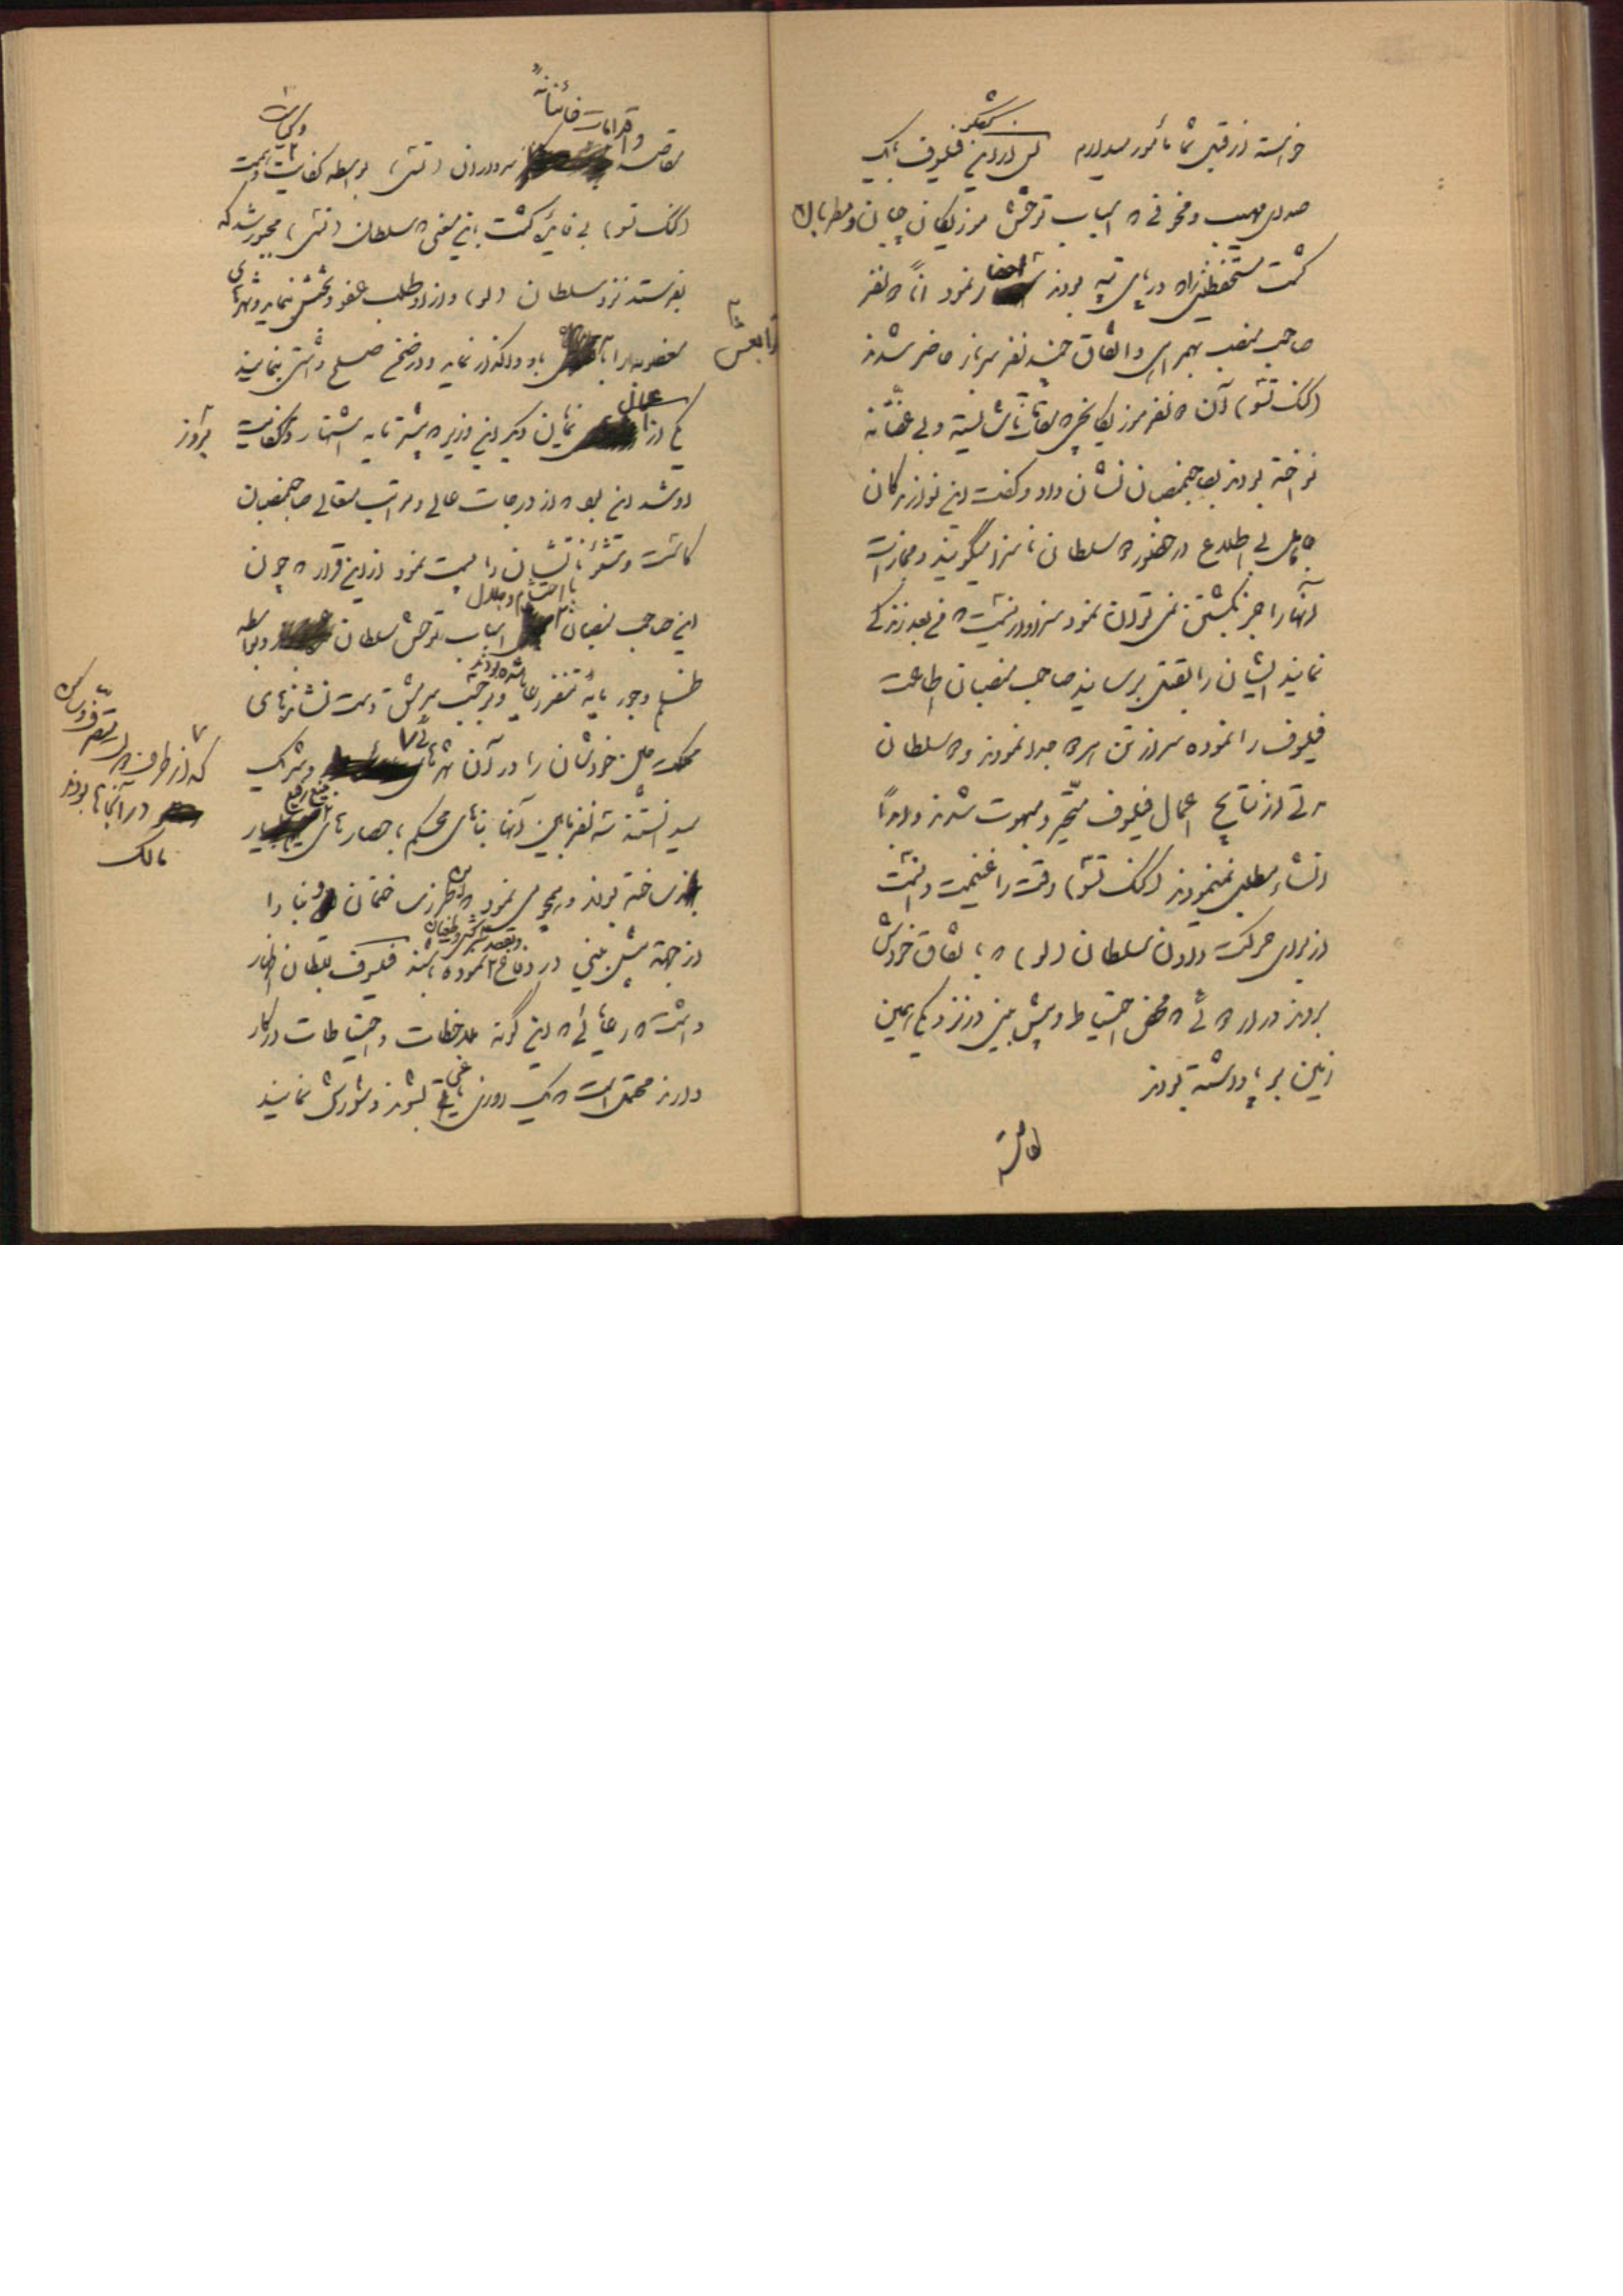 خواسته از قتل شما مأمور میدارم پس از این فیلسوف بیک
صدای مهیب و مخوفی که اسباب توحش موزیکان چیان و مطربان
گشت مستحفظینی را که در پای تپه بودند احضار نمود آناً ده نفر
صاحب منصب بهمراهی و اتفاق چند نفر سرباز حاضر شدند
(کنک تسو) آن ده نفر موزیکانچی که مقامات ناشایسته و بی عفتانه
نواخته بودند بصاحبمنصبان نشان داد و گفت این نوازندگان
جاهل بی اطلاع در حضور سلطان ناسزا میگویند و مجازات
آنها را جز بکشتن نمی توان نمود سزاوار نیست که من بعد زندگی
نمایند ایشان را بقتل برسانید صاحب منصبان اطاعت
فیلسوف را نموده سر از تن همه جدا نمودند و سلطان
مدتی از نتایج اعمال فیلسوف متحیر و مبهوت شدند و ابداً
انشاء مطلبی نمینمودند (کنک تسو) وقت را غنیمت دانست
از برای حرکت دادن سلطان (لو) که باتفاق خودش
بودند در اراده که محض احتیاط و پیش بینی در نزدیکی همین
زمین بر پا داشته بودند
مقاصد و اقدامات خائنانه سرداران (تسی) بواسطه کفایت و همت
(کنک تسو) بی فایده گشت باین معنی که سلطان (تسی) مجبور شد که
بفرستد نزد سلطان (لو) و از او طلب عفو و بخشش نماید و شهرهای
مغصوبه را باو واگذار نماید و در ضمن صلح و آشتی بنمایند
یکی از اعمال نمایان دیگر این وزیر که بیشتر مایه اشتهار و کفایت
او شد این بود که از درجات عالی و مراتب متعالی صاحبمنصبان
کاست و شئوناتشان را پست نمود از این قرار که چون
این صاحب منصبان با احتشام و جلال اسباب توحش سلطان و بواسطه
ظلم و جور مایه تنفر رعایا شده بودند و بر حسب سرکشی و سمت نشانهای
مملکت محل خودشان را در آن شهرهای و شریک
میدانستند سه نفر مابین آنها بناهای محکم با حصارهای بسیار منیع رفیع
ساخته بودند و همچو می نمود که این طرز ساختمان و بنا را
از جهة پیش بینی در دفاع و بقصد سرکشی و طغیان نموده باشند فیلسوف بسلطان اظهار
داشت که رعایائی که این گونه ملاحظات و احتیاطات در کار
دارند محتمل است که یک روزی یاغی بشوند و شورش نمایند
که از طرف
در آنجاها بودند
مالک